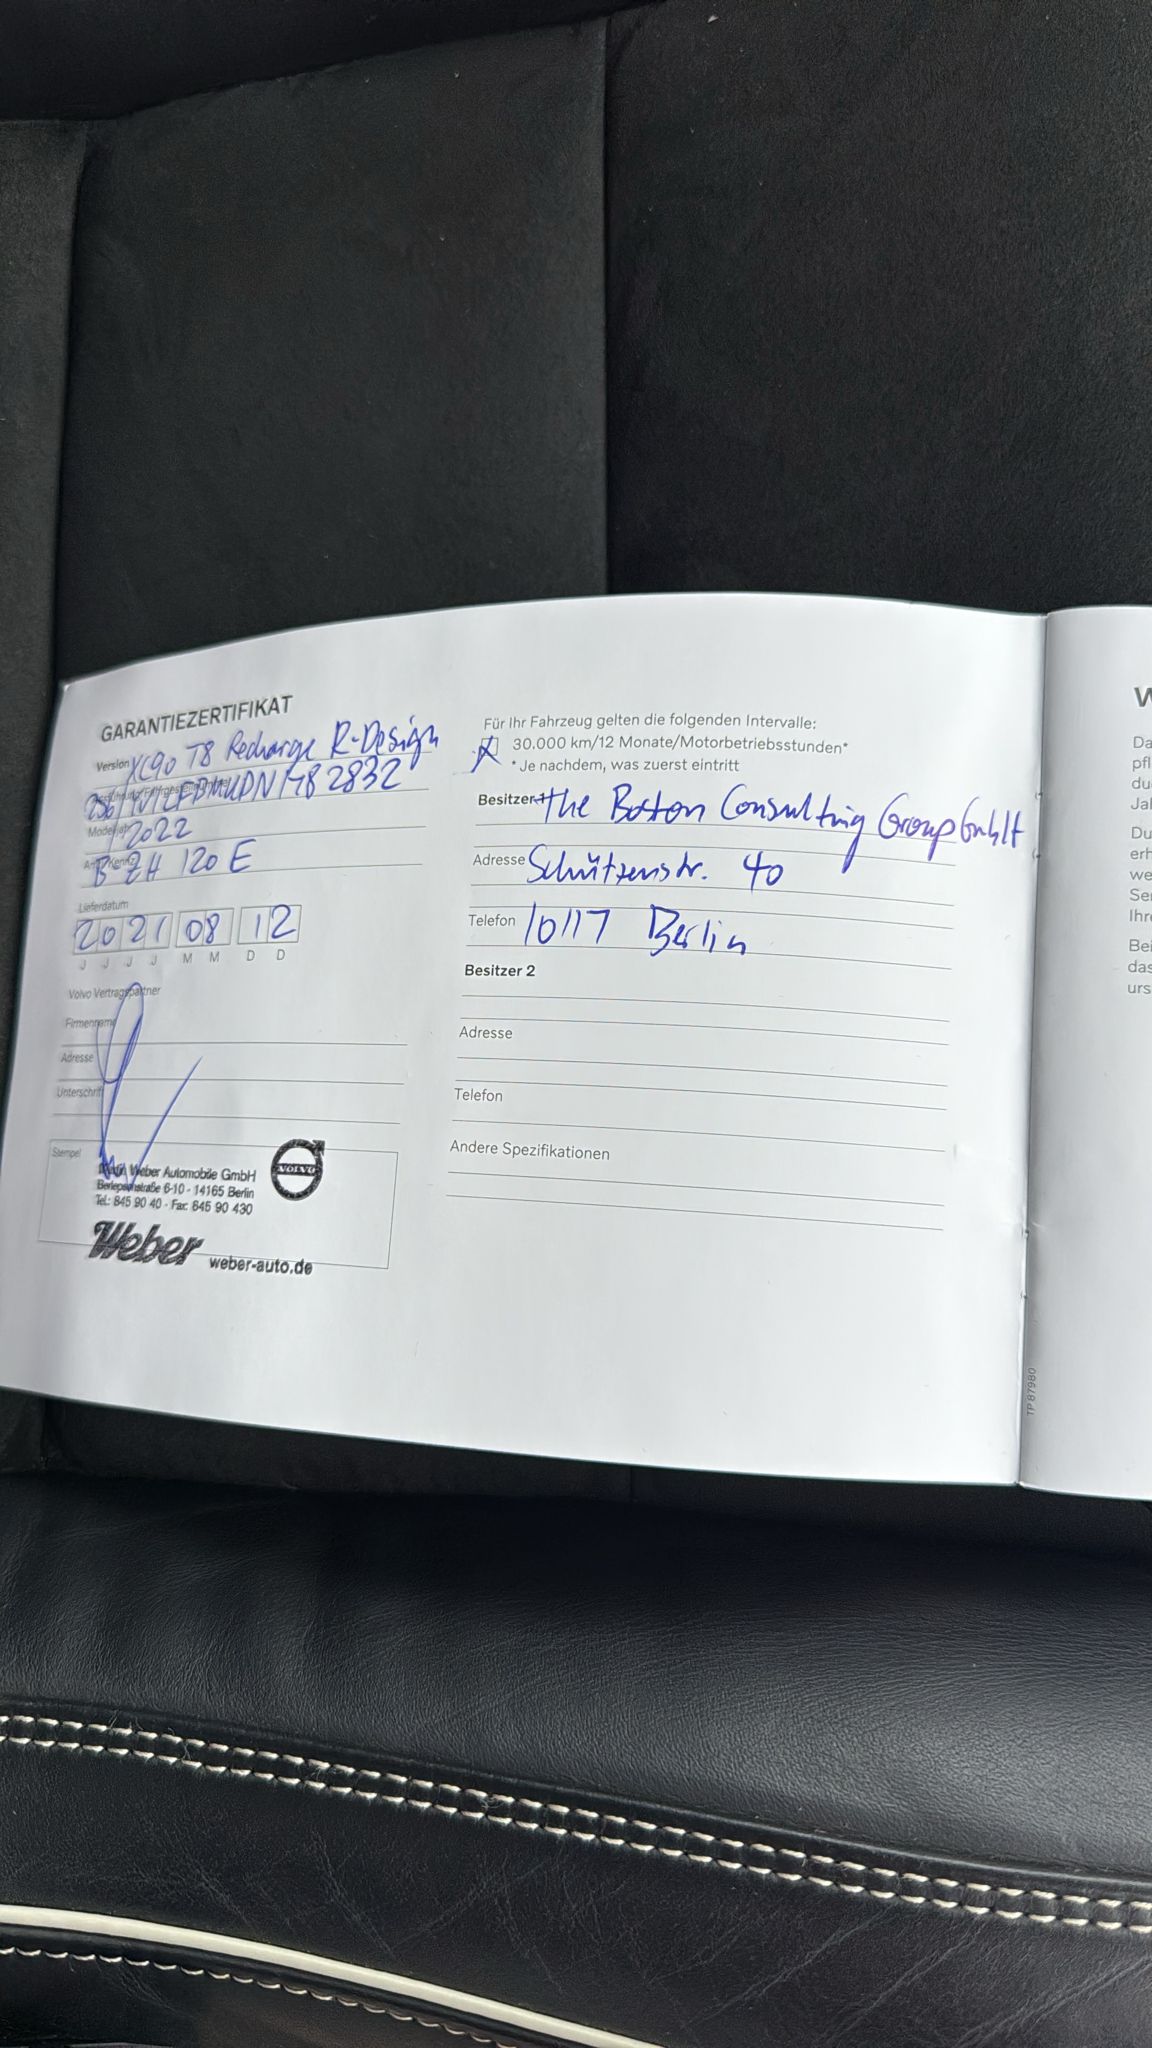 GARANTIEZERTIFIKAT
Version XC90 T8 Recharge R-Design
256/
782832
Modelljahr 2022
B-ZH 120 E
Lieferdatum
2021 08 12
J J J J M M D D
Volvo Vertragspartner
Firmenname
Adresse
Unterschrift
Stempel
Weber Automobile GmbH
Berlepschstraße 6-10 - 14165 Berlin
Tel.: 845 90 40 - Fax: 845 90 430
VOLVO
Weber weber-auto.de
Für Ihr Fahrzeug gelten die folgenden Intervalle:
30.000 km/12 Monate/Motorbetriebsstunden*
*Je nachdem, was zuerst eintritt
Besitzer 1 The Boston Consulting Group GmbH
Adresse Schützenstr. 40
Telefon 10117 Berlin
Besitzer 2
Adresse
Telefon
Andere Spezifikationen
TP 87980
W
Da
pfl
du
Jal
Du
erh
we
Ser
Ihre
Bei
das
urs